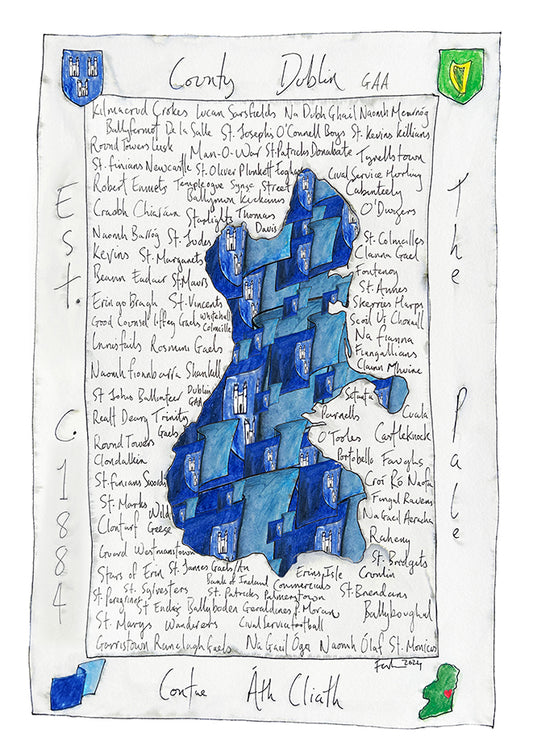 County Dublin GAA
Kilmacud Crokes Lucan Sarsfields Na Dubh Ghail Naomh Mearnóg
Ballyfermot De La Salle St. Josephs O'Connell Boys St. Kevins Killians
Round Towers Lusk Man-O-War St. Patricks Donabate Tyrrelstown
St. Finians Newcastle St. Oliver Plunkett Eoghan Civil Service Hurling
Robert Emmets Templeogue Synge Street Cabinteely
Ballymun Kickhams
Craobh Chiaráin Starlights Thomas Davis O'Dwyers
Naomh Barróg St. Judes St. Colmcilles
Kevins St. Margarets Clanna Gael
Beann Eadair St. Maurs Fontenoy
Erin go Bragh St. Vincents St. Annes
Good Counsel Liffey Gaels Whitehall Colmcille Skerries Harps
Innisfails Rosmini Gaels Scoil Uí Chonaill
Na Fianna
Naomh Fionnbarra Shankill Fingallians
Clann Mhuire
St Johns Ballinteer Dublin GAA Setanta
Realt Dearg Trinity Gaels Parnells Cuala
Round Towers Clondalkin O'Tooles Castleknock
Portobello Faughs
St. Finians Swords Croí Ró Naofa
St. Marks Wild Geese Fingal Ravens
Clontarf Na Gaeil Aeracha
Guard Westmanstown Raheny
Stars of Erin St. James Gaels/An Erins Isle Cromlin St. Bridgets
St. Sylvesters Bank of Ireland Commercials St. Brendans
St. Peregrines St. Patricks Palmerstown
St Endas Ballyboden Geraldines P. Moran Ballyboughal
St. Marys Wanderers Civil Service Football
Garristown Ranelagh Gaels Na Gaeil Óga Naomh Ólaf St. Monicas
2024
Est. C. 1884
The Pale
Contae Áth Cliath